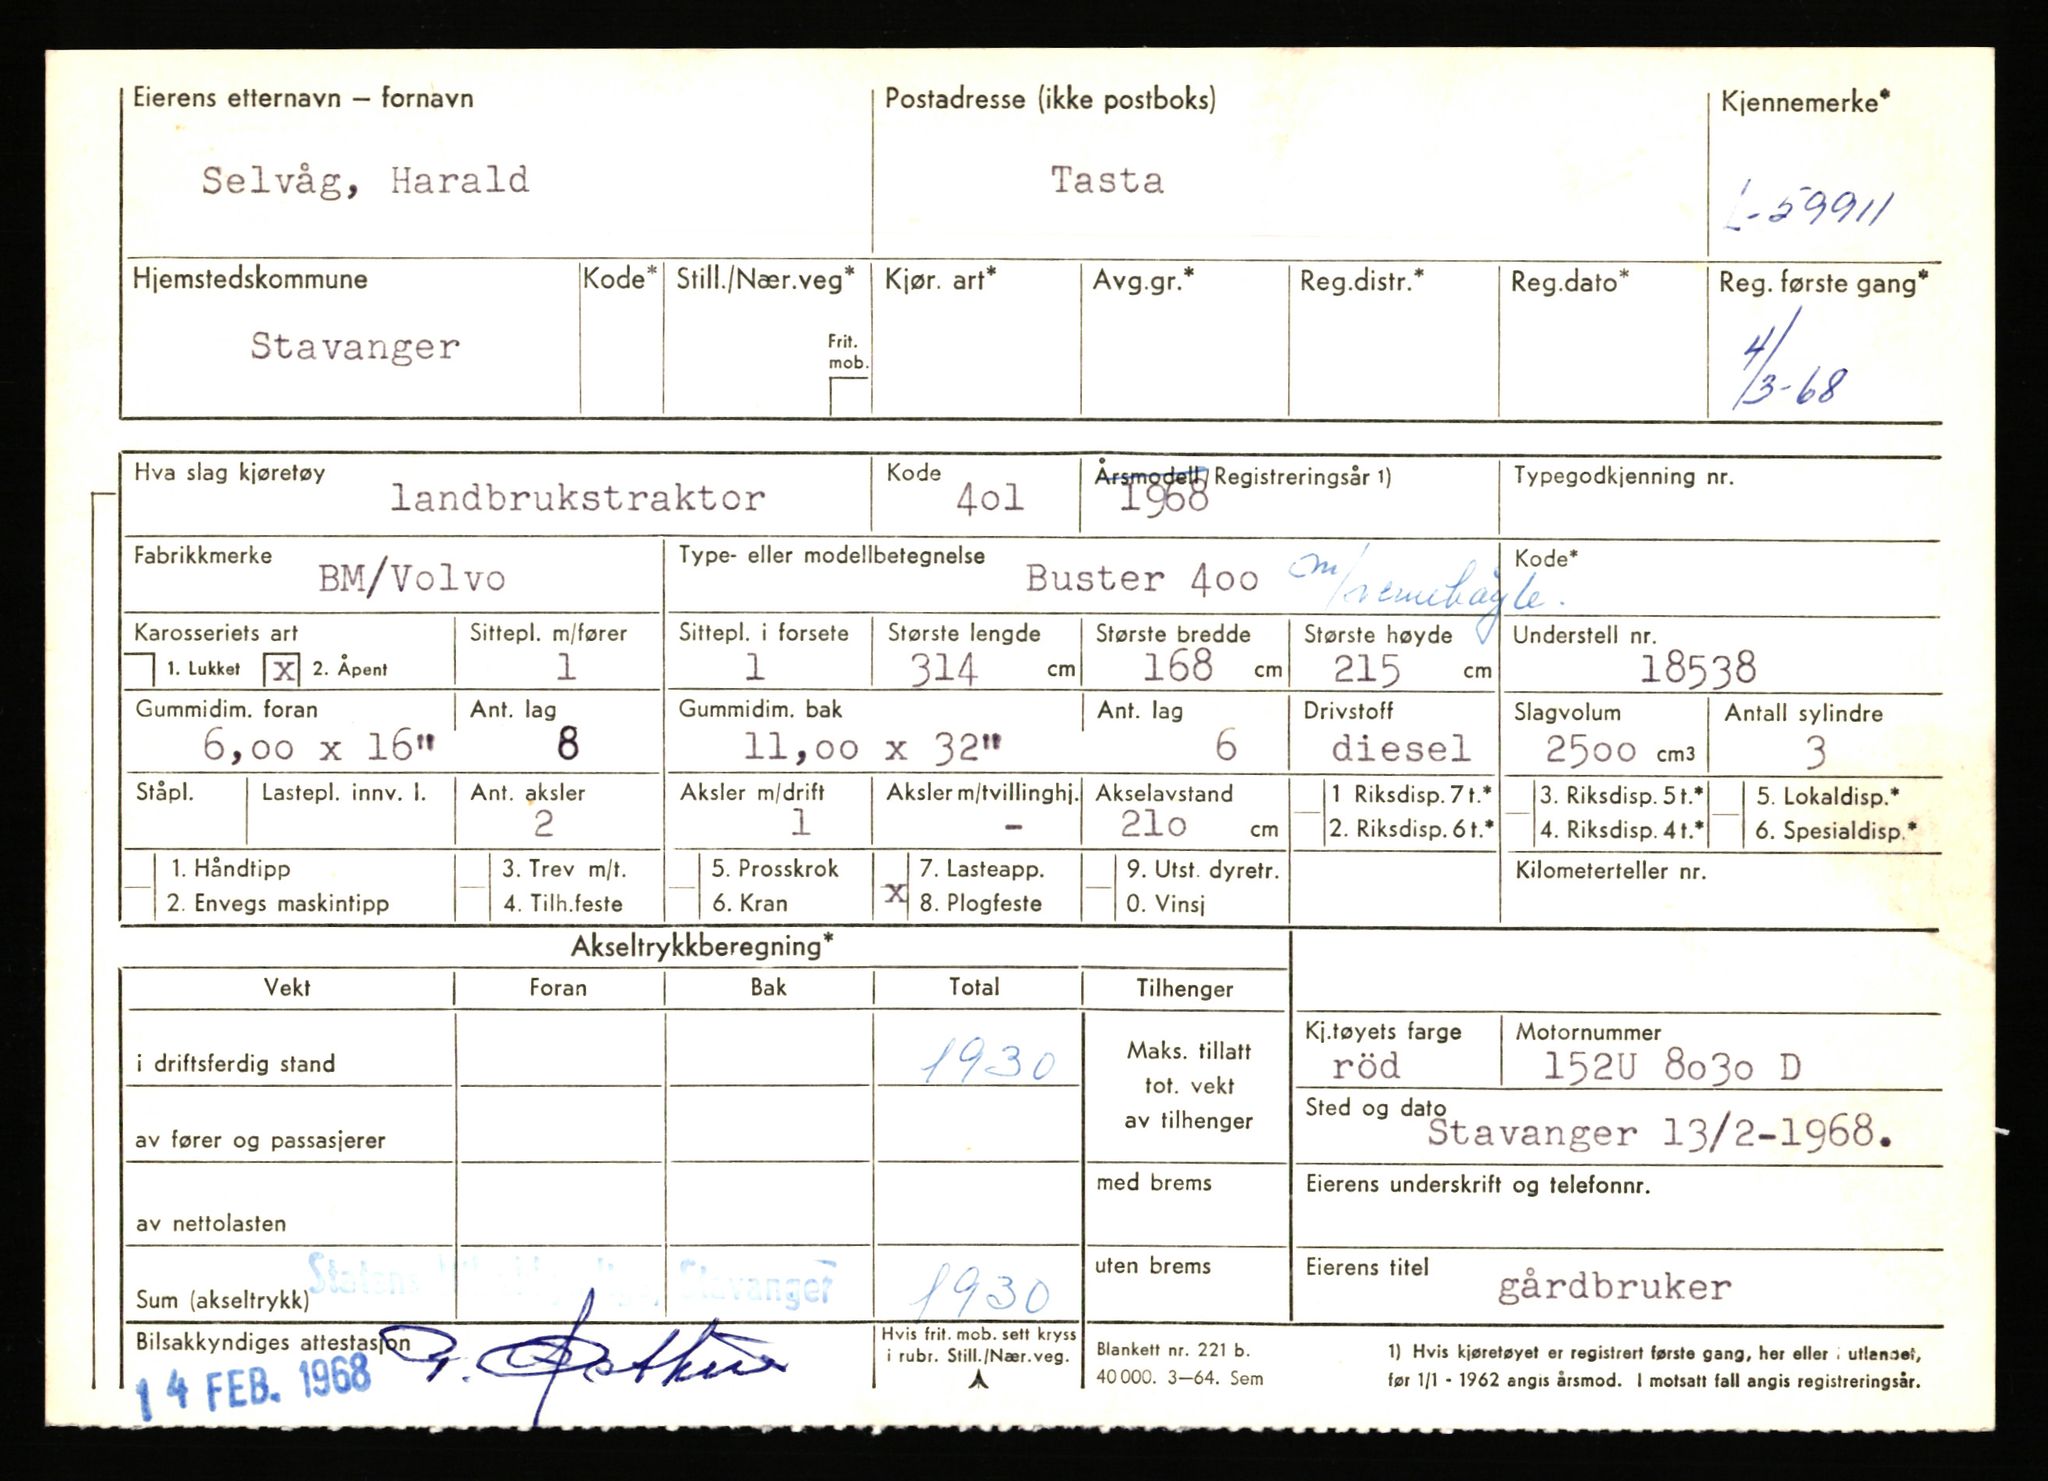 Eierens etternavn — fornavn Postadresse (ikke postboks) Kjennemerke*
Selvåg, Harald Tasta L-59911
Hjemstedskommune Kode* Still./Nær.veg* Kjør. art* Avg.gr.* Reg.distr.* Reg.dato* Reg. første gang*
Stavanger Frit. mob. 4/3-68
Hva slag kjøretøy Kode Årsmodell/Registreringsår 1) Typegodkjenning nr.
landbrukstraktor 4o1 1968
Fabrikkmerke Type- eller modellbetegnelse Kode*
BM/Volvo Buster 4oo m/vernebøyle.
Karosseriets art Sittepl. m/fører Sittepl. i forsete Største lengde Største bredde Største høyde Understell nr.
1. Lukket x 2. Åpent 1 1 314 cm 168 cm 215 cm 18538
Gummidim. foran Ant. lag Gummidim. bak Ant. lag Drivstoff Slagvolum Antall sylindre
6,oo x 16" 8 11,oo x 32" 6 diesel 25oo cm3 3
Ståpl. Lastepl. innv. l. Ant. aksler Aksler m/drift Aksler m/tvillinghj. Akselavstand 1 Riksdisp. 7 t.* 3. Riksdisp. 5 t.* 5. Lokaldisp.*
2 1 - 21o cm 2. Riksdisp. 6 t.* 4. Riksdisp. 4 t.* 6. Spesialdisp.*
1. Håndtipp 3. Trev m/t. 5. Prosskrok 7. Lasteapp. 9. Utst. dyretr. Kilometerteller nr.
2. Envegs maskintipp 4. Tilh.feste 6. Kran x 8. Plogfeste 0. Vinsj
Akseltrykkberegning*
Vekt Foran Bak Total Tilhenger
Kj.tøyets farge Motornummer
i driftsferdig stand 1930 Maks. tillatt tot. vekt av tilhenger röd 152U 8o3o D
Sted og dato
av fører og passasjerer Stavanger 13/2-1968.
med brems Eierens underskrift og telefonnr.
av nettolasten
uten brems Eierens titel
Sum (akseltrykk) Statens Stavanger 1930 gårdbruker
Bilsakkyndiges attestasjon Hvis frit. mob. sett kryss i rubr. Still./Nær.veg. Blankett nr. 221 b. 1) Hvis kjøretøyet er registrert første gang, her eller i utlandet,
14 FEB. 1968 40 000. 3—64. Sem før 1/1 - 1962 angis årsmod. I motsatt fall angis registreringsår.